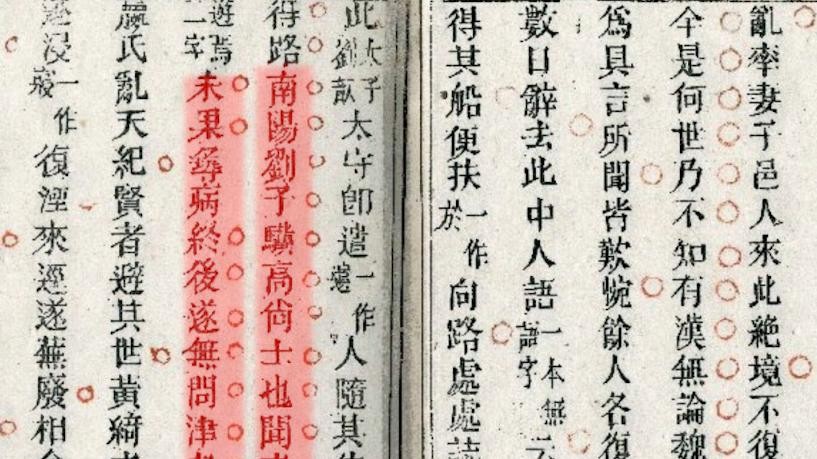 亂率妻子邑人來此絶境不復
今是何世乃不知有漢無論魏
為具言所聞皆歎惋餘人各復
數日辭去此中人語一本無語字云
得其船便扶一作於向路處處誌
太守卽遣一作人隨其
得路南陽劉子驥高尙士也聞
一字未果尋病終後遂無問津
嬴氏亂天紀賢者避其世黃綺
浸一作寖復湮來逕遂蕪廢相